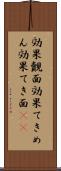 効果覿面効果てきめ
ん効果てき面